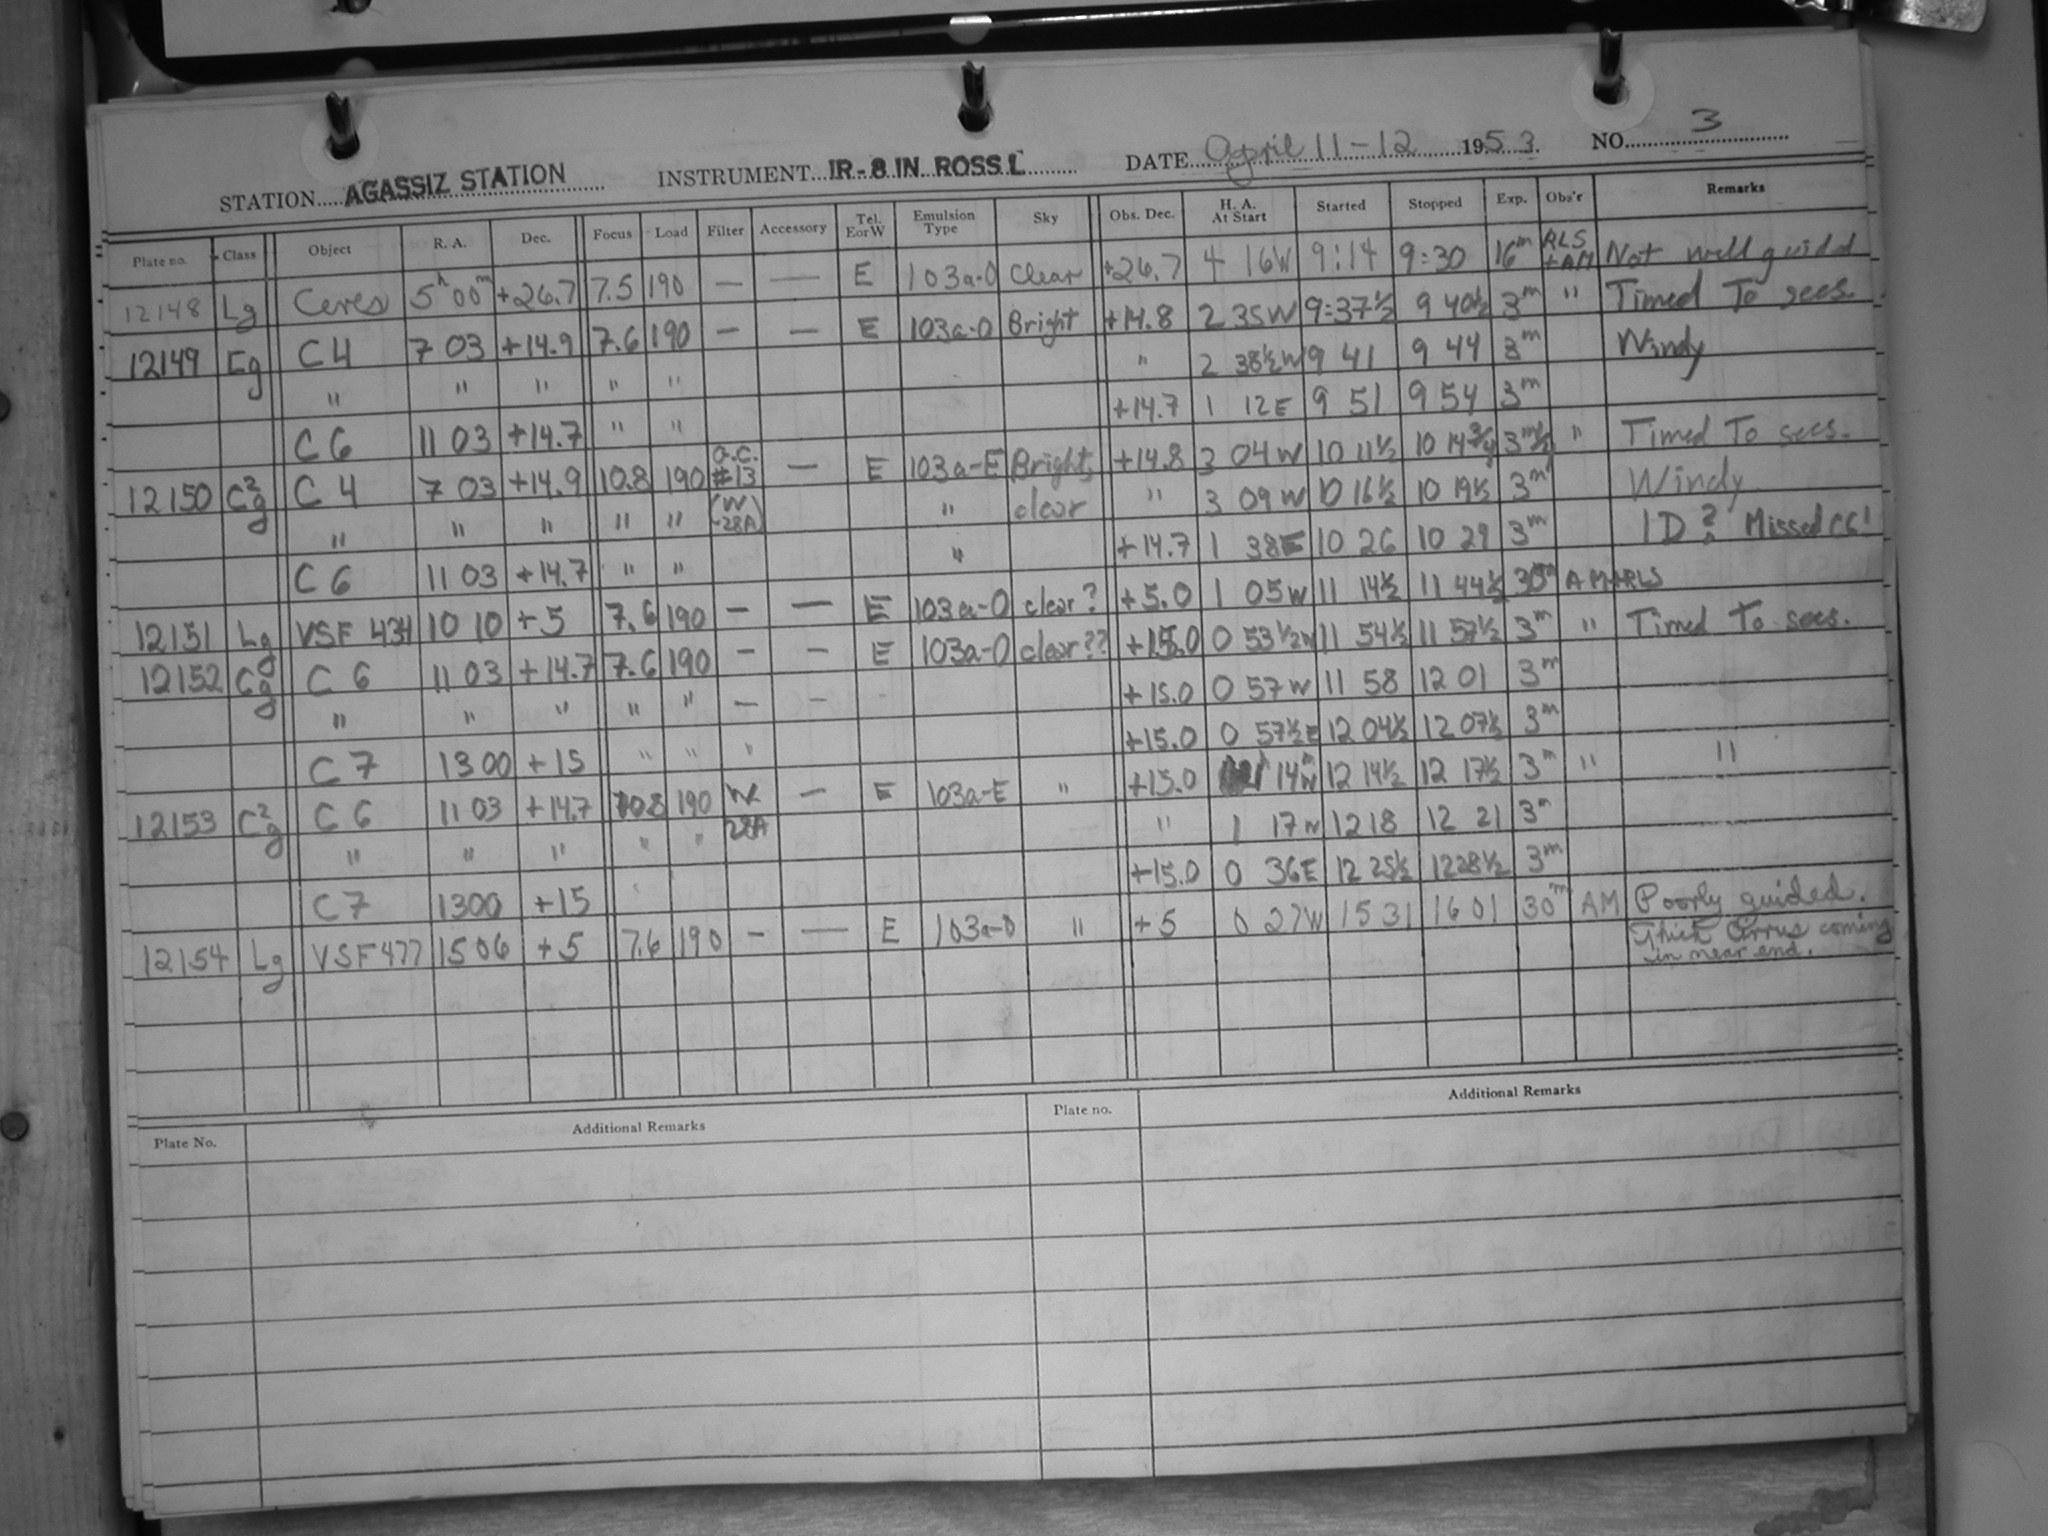 STATION AGASSIZ STATION INSTRUMENT IR-8 IN ROSS L DATE April 11-12 1953. NO. 3
Plate no. Class Object R. A. Dec. Focus Load Filter Accessory Tel. E or W Emulsion Type Sky Obs. Dec. H. A. At Start Started Stopped Exp. Obs'r Remarks
12148 Lg Ceres 5h 00m +26.7 7.5 190 — — E 103a-O Clear +26.7 4 16W 9:14 9:30 16m RLS +AM Not well guided
12149 Cg C4 7 03 +14.9 7.6 190 — — E 103a-O Bright +14.8 2 35W 9:37½ 9 40½ 3m " Timed To secs.
" " " " " " 2 38½W 9 41 9 44 3m Windy
C6 11 03 +14.7 " " +14.7 1 12E 9 51 9 54 3m
12150 C2g C4 7 03 +14.9 10.8 190 a.c. #13 — E 103a-E Bright, +14.8 3 04W 10 11½ 10 14¾ 3m½ " Timed To secs.
" " " " " (W 28A) " clear " 3 09W 10 16½ 10 19½ 3m Windy
C6 11 03 +14.7 " " " +14.7 1 38E 10 26 10 29 3m ID? Missed C6!
12151 Lg VSF 434 10 10 +5 7.6 190 — — E 103a-O clear? +5.0 1 05W 11 14½ 11 44½ 30m AM+RLS
12152 Cg C6 11 03 +14.7 7.6 190 — — E 103a-O clear?? +15.0 0 53½W 11 54½ 11 57½ 3m " Timed To secs.
" " " " " — — +15.0 0 57W 11 58 12 01 3m
C7 1300 +15 " " " +15.0 0 57½E 12 04½ 12 07½ 3m
12153 C2g C6 11 03 +14.7 10.8 190 W — E 103a-E " +15.0 1h 14mW 12 14½ 12 17½ 3m " "
" " " " " 28A " 1 17W 12 18 12 21 3m
C7 1300 +15 " +15.0 0 36E 12 25½ 12 28½ 3m
12154 Lg VSF 477 15 06 +5 7.6 190 — — E 103a-O " +5 0 27W 15 31 16 01 30m AM Poorly guided.
Thick Cirrus coming
in near end.
Plate No. Additional Remarks Plate no. Additional Remarks